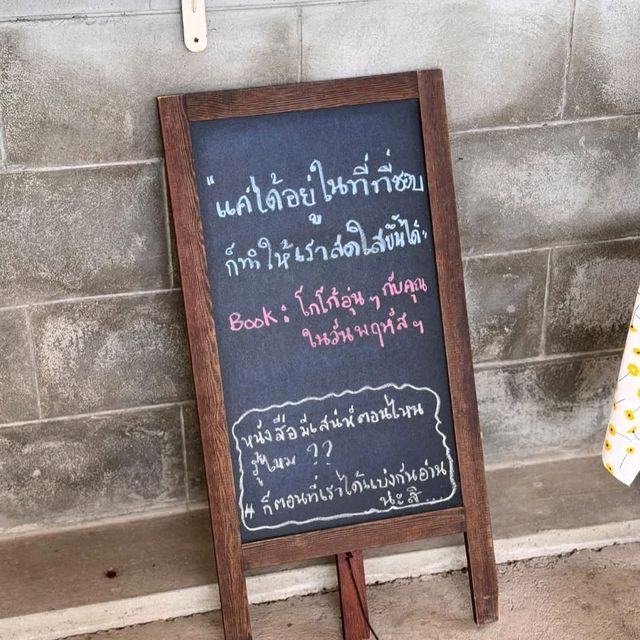 "แค่ได้อยู่ในที่ที่ชอบ
ก็ทำให้เราสดใสขึ้นได้"
Book: โกโก้อุ่น ๆ กับคุณ
ในวันพฤหัส ฯ
หนังสือมีเสน่ห์ตอนไหน
รู้ไหม ??
ก็ตอนที่เราได้แบ่งกันอ่าน
น่ะสิ...